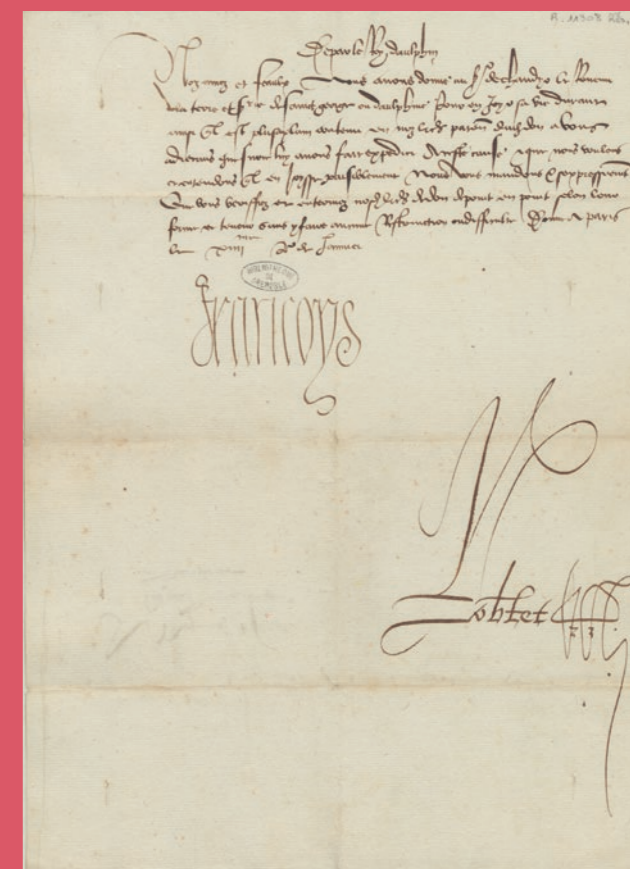 R. 10308 Rés.
De par le Roy daulphin
Noz amez et feaulx Nous avons donné au Sr de chandyo le Revenu
de la terre et Srie de sainct george en daulphiné Pour en Joyr sa vie durant
ainsi qu'il est plus a plain contenu en noz lectres patentes dud. don a vous
adressans que nous luy avons fait expedier A ceste cause et que nous voulons
et entendons qu'il en Joysse paisiblement Nous vous mandons et expressement
Que vous veriffiez et enterinez nosd. lectres de don de point en point selon leur
forme et teneur sans y faire aucune Restrinction ou difficulté Donné A paris
le xiiiime Jor de Janvier
BIBLIOTHEQUE DE GRENOBLE
Françoys
Robertet